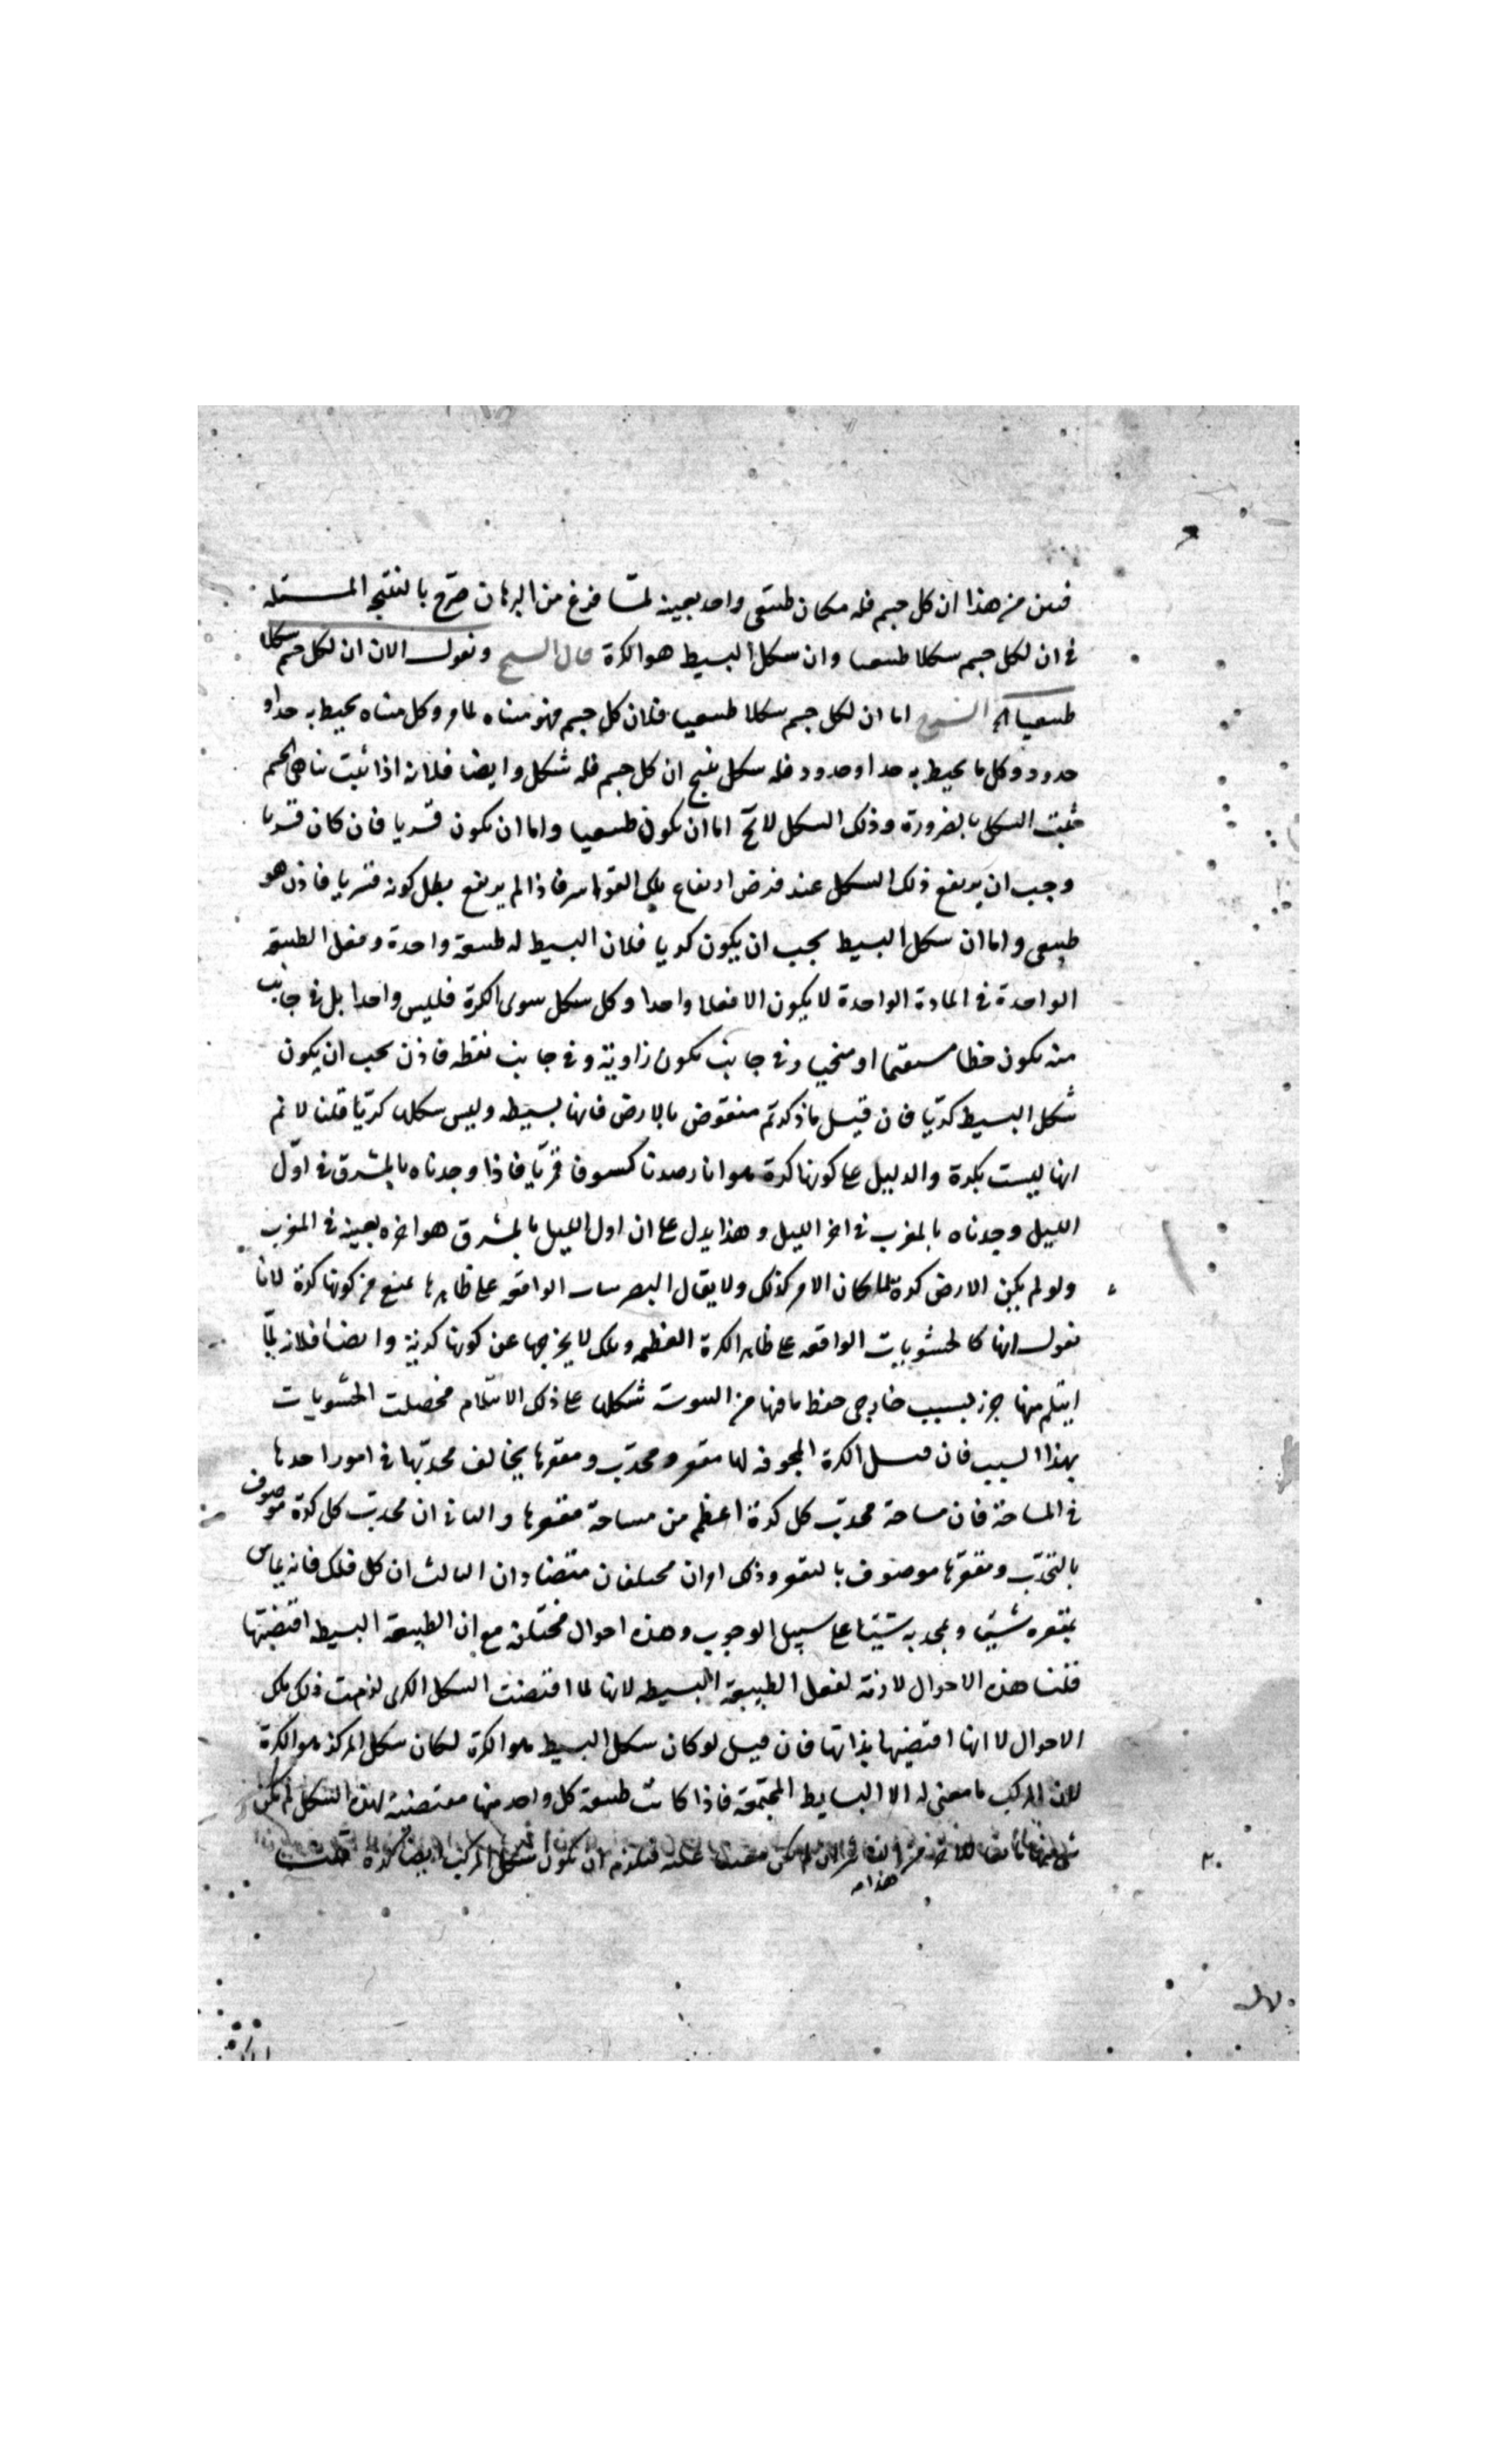 فبين من هذا ان كل جسم فله مكان طبيعى واحد بعينه لمّا فرغ من البرهان صرّح بالنتيجة المسئله
فى ان لكل جسم سكلا طبيعيا وان سكل البسيط هو الكرة قال الشيخ ونقول الان ان لكل جسم سكلا
طبيعيا الشرح اما ان لكل جسم سكلا طبيعيا فلان كل جسم فهو متناه لما مر وكل متناه يحيط به حد او
حدود وكل ما يحيط به حد او حدود فله سكل ينتج ان كل جسم فله شكل وايضا فلانه اذا ثبت تناهى الجسم
ثبت السكل بالضرورة وذلك السكل لا يخ اما ان يكون طبيعيا واما ان يكون قسريا فان كان قسريا
وجب ان يرتفع ذلك السكل عند فرض ارتفاع تلك القواسر فاذا لم يرتفع بطل كونه قسريا فاذن هو
طبيعى واما ان سكل البسيط يجب ان يكون كريا فلان البسيط له طبيعة واحدة وفعل الطبيعة
الواحدة فى المادة الواحدة لا يكون الا فعلا واحدا وكل سكل سوى الكرة فليس واحدا بل فى جانب
منه يكون خطا مستقيما او منحنيا وفى جانب يكون زاوية وفى جانب نقطه فاذن يجب ان يكون
شكل البسيط كريّا فان قيل ما ذكرتم منقوض بالارض فانها بسيطه وليس سكلها كريّا قلنا لا نم
انها ليست بكرة والدليل على كونها كرة هو انا رصدنا كسوفا قمريّا فاذا وجدناه بالمشرق فى اوّل
الليل وجدناه بالمغرب فى اخر الليل وهذا يدل على ان اول الليل بالمشرق هو اخره بعينه فى المغرب
ولو لم يكن الارض كرة لما كان الامر كذلك ولا يقال التضريسات الواقعه على ظاهرها يمنع من كونها كرة لانا
نقول انها كالخشونات الواقعه على ظاهر الكرة العظيمه وتلك لا يخرجها عن كونها كرية وايضا فلانه لمّا
انثلم منها جزء لسبب خارجى حفظ ما فيها من اليبوسة شكلها على ذلك الانثلام فحصلت الخشونات
بهذا السبب فان قيل الكرة المجوفه لها مقعر ومحدّب ومقعرها يخالف محدّبها فى امور احدها
فى المساحة فان مساحة محدّب كل كرة اعظم من مساحة مقعرها والثانى ان محدّب كل كرة موصوف
بالتحدّب ومقعرها موصوف بالتقعر وذلك امران مختلفان متضادان الثالث ان كل فلك فانه يماس
بمقعره شيئا وبمحدبه شيئا على سبيل الوجوب وهذه احوال مختلفة مع ان الطبيعة البسيطه اقتضتها
قلنا هذه الاحوال لازمة لفعل الطبيعة البسيطه لانها لما اقتضت السكل الكرى لزمت ذلك تلك
الاحوال لا انها اقتضيتها بذاتها فان قيل لو كان سكل البسيط هو الكرة لكان سكل المركب هو الكرة
لان المركب ما معنى له الا البسايط المجتمعة فاذا كانت طبيعة كل واحد منها مقتضية لهذه السكل لم يكن
فيلزم ان يكون شكل المركب ايضا كرة قلنا
هذا